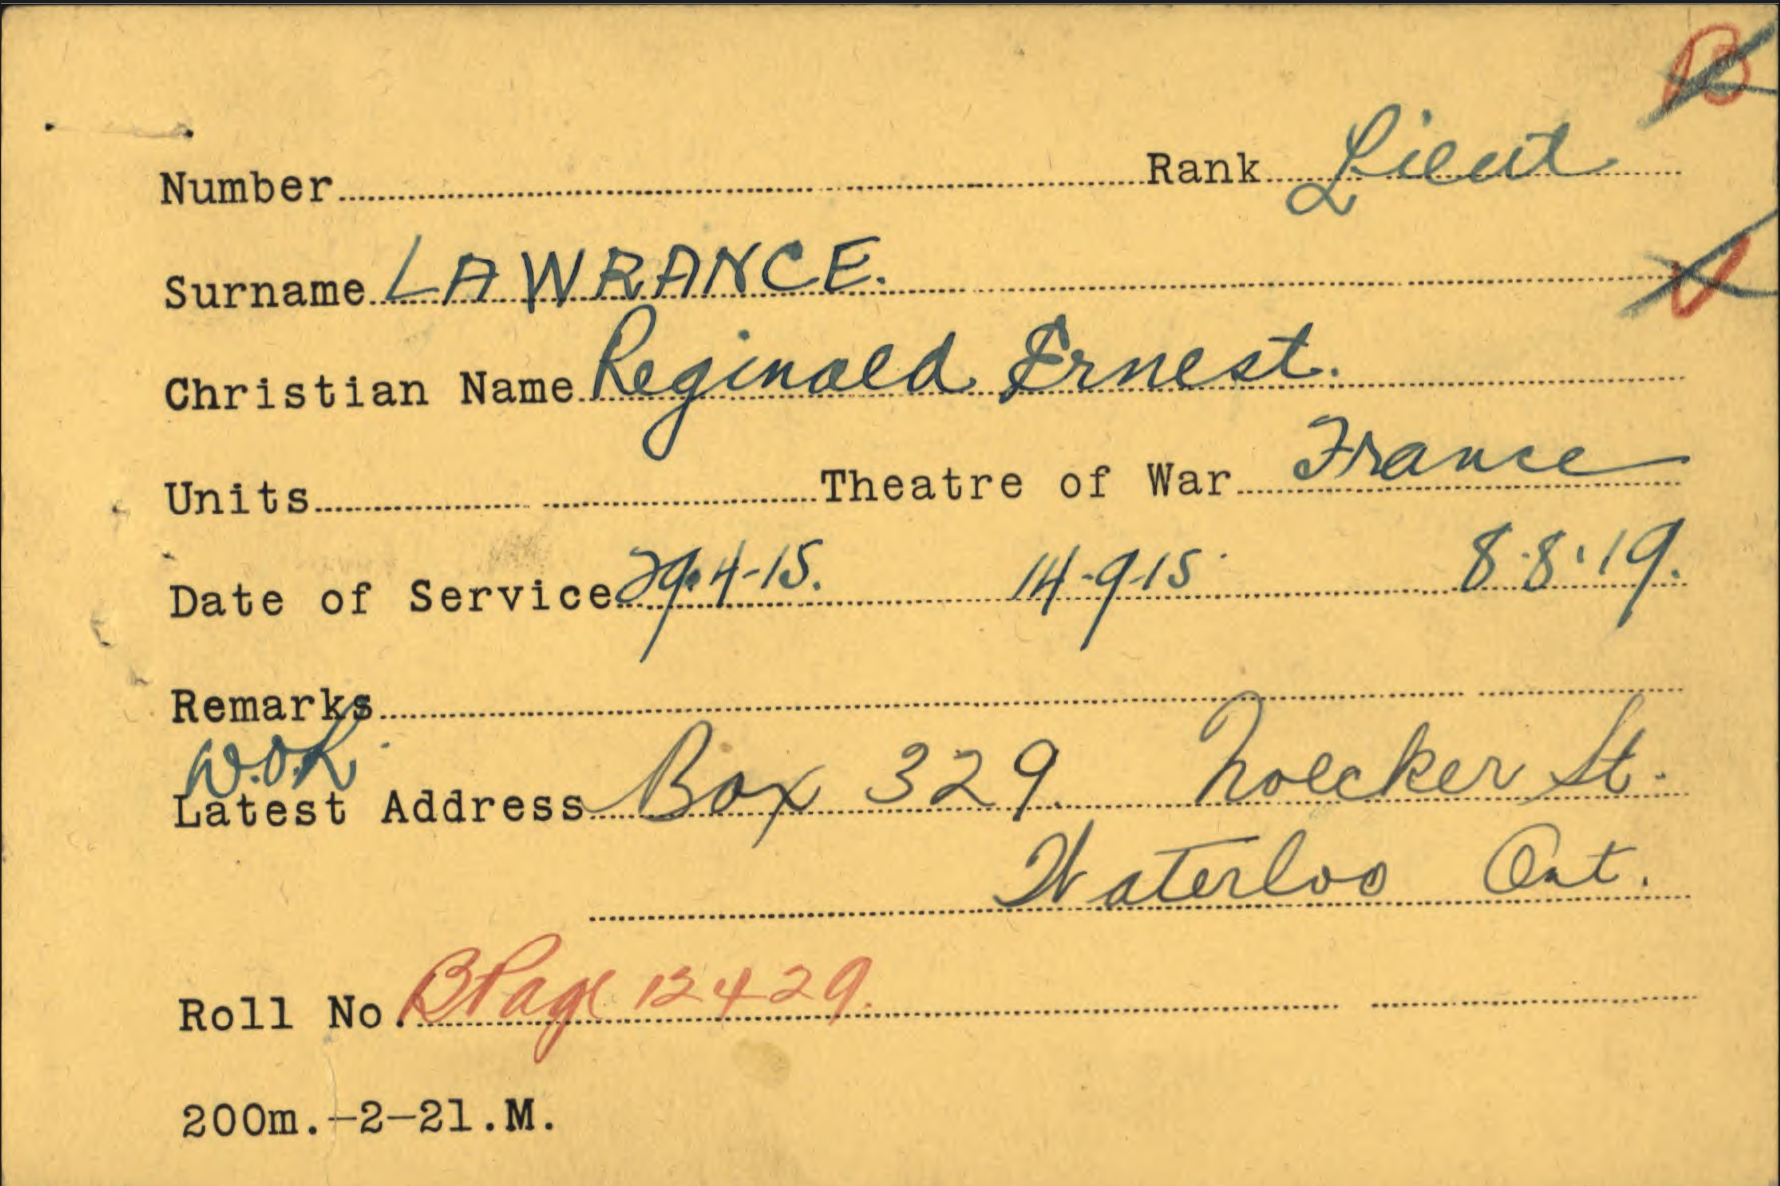 B
Number Rank Lieut
Surname LAWRANCE.
V
Christian Name Reginald Ernest.
Units Theatre of War France
Date of Service 29.4-15. 14-9-15 8.8.19.
Remarks
Latest Address Box 329. Noecker St.
Waterloo Ont.
Roll No. B Page 12429.
200m.-2-21.M.